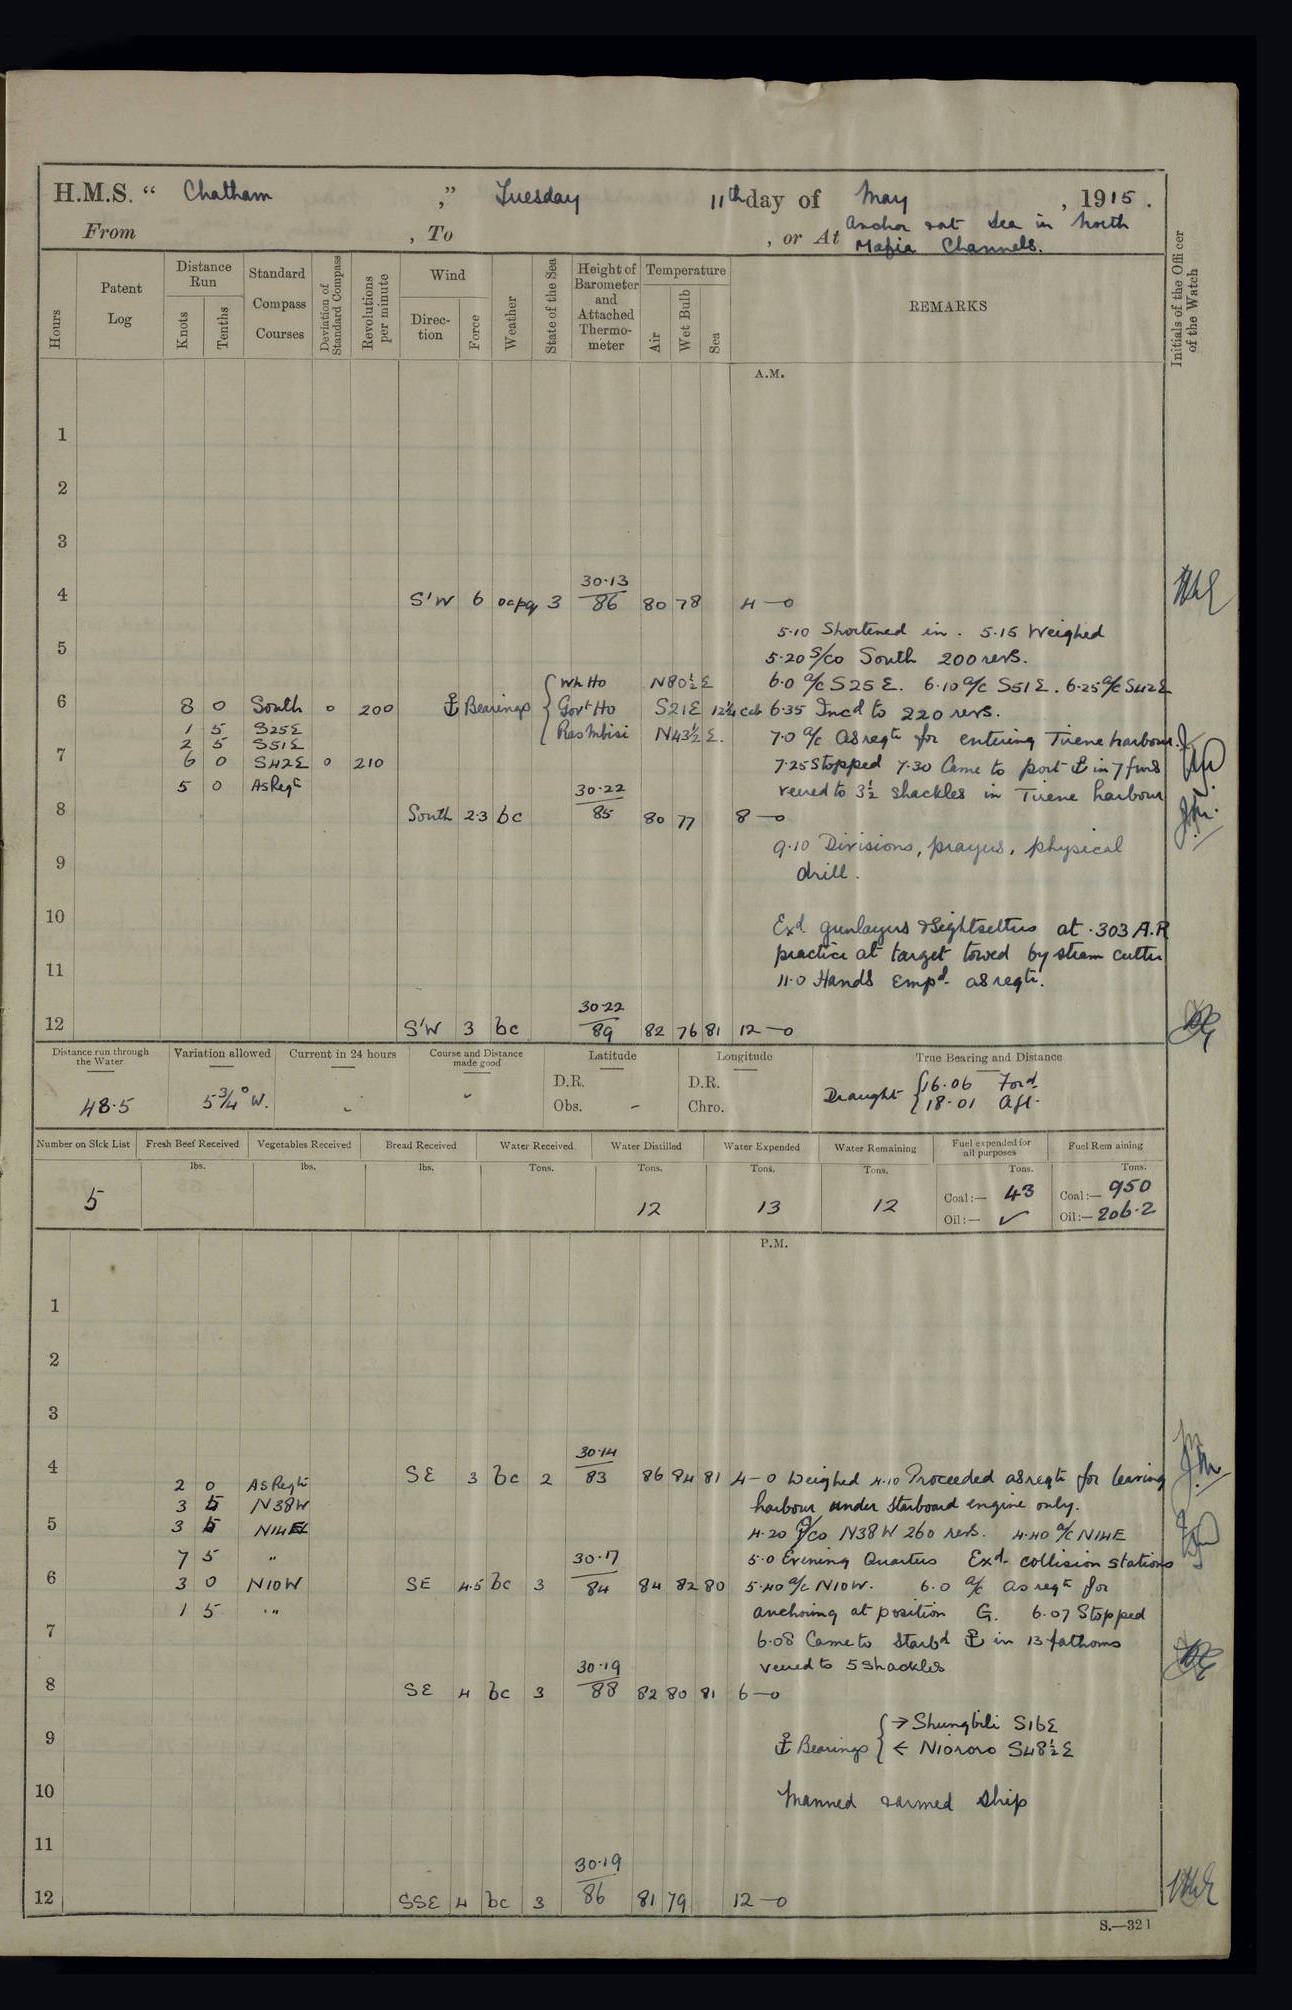 H.M.S. “ Chatham ,” Tuesday 11th day of May , 1915 .
From , To , or At Anchor & at Sea in North
Mafia Channels.
Hours
Patent Log
Distance Run
Knots
Tenths
Standard Compass Courses
Deviation of Standard Compass
Revolutions per minute
Wind
Direc-tion
Force
Weather
State of the Sea
Height of Barometer and Attached Thermo-meter
Temperature
Air
Wet Bulb
Sea
REMARKS
Initials of the Officer of the Watch
A.M.
1
2
3
30·13
4 S'W 6 ocpq 3 86 80 78 4 —0
5·10 Shortened in . 5·15 Weighed
5
5·20 S/co South 200 revs.
Wh Ho N80½E 6·0 a/c S25E. 6·10 a/c S51E. 6·25 a/c S42E
6 8 0 South 0 200 ⚓ Bearings Govt Ho S21E 12¼ cab 6·35 Incd to 220 revs.
1 5 S25E Ras Mbisi N43½E. 7·0 a/c as reqte for entering Tirene harbour.
2 5 S51E
7 6 0 S42E 0 210 7·25 Stopped 7·30 Came to port ⚓ in 7 fms
5 0 As Reqte 30·22 veered to 3½ shackles in Tirene harbour
8 South 2·3 bc 85 80 77 8 —0
9·10 Divisions, prayers, physical
9 drill.
10 Exd gunlayers & Sightsetters at ·303 A.R
practice at target towed by steam cutter
11 11·0 Hands Empd as reqte.
30·22
12 S'W 3 bc 89 82 76 81 12 —0
Distance run through the Water
Variation allowed
Current in 24 hours
Course and Distance made good
Latitude
Longitude
True Bearing and Distance
D.R. D.R.
48·5 5¾° W. Obs. - Chro. Draught 16·06 Ford.
18·01 Aft.
Number on Sick List
Fresh Beef Received
Vegetables Received
Bread Received
Water Received
Water Distilled
Water Expended
Water Remaining
Fuel expended for all purposes
Fuel Remaining
lbs. lbs. lbs. Tons. Tons. Tons. Tons. Tons. Tons.
5 12 13 12 Coal:— 43 Coal:— 950
Oil:— ✓ Oil:— 206·2
P.M.
1
2
3
30·14
4 SE 3 bc 2 83 86 84 81 4—0 Weighed 4·10 Proceeded as reqte for leaving
2 0 As Reqte
3 5 N38W harbour under Starboard engine only.
5 3 5 N14E 4·20 S/co N38W 260 revs. 4·40 a/c N14E
7 5 " 30·17 5·0 Evening Quarters Exd collision stations
6 3 0 N10W SE 4·5 bc 3 84 84 82 80 5·40 a/c N10W. 6·0 a/c as reqte for
1 5 " anchoring at position G. 6·07 Stopped
7 6·08 Came to Starbd ⚓ in 13 fathoms
30·19 veered to 5 shackles
8 SE 4 bc 3 88 82 80 81 6—0
→ Shungbili S16E
9 ⚓ Bearings ← Nioroo S48½E
10 Manned & armed ship
11
30·19
12 SSE 4 bc 3 86 81 79 12—0
S.—321